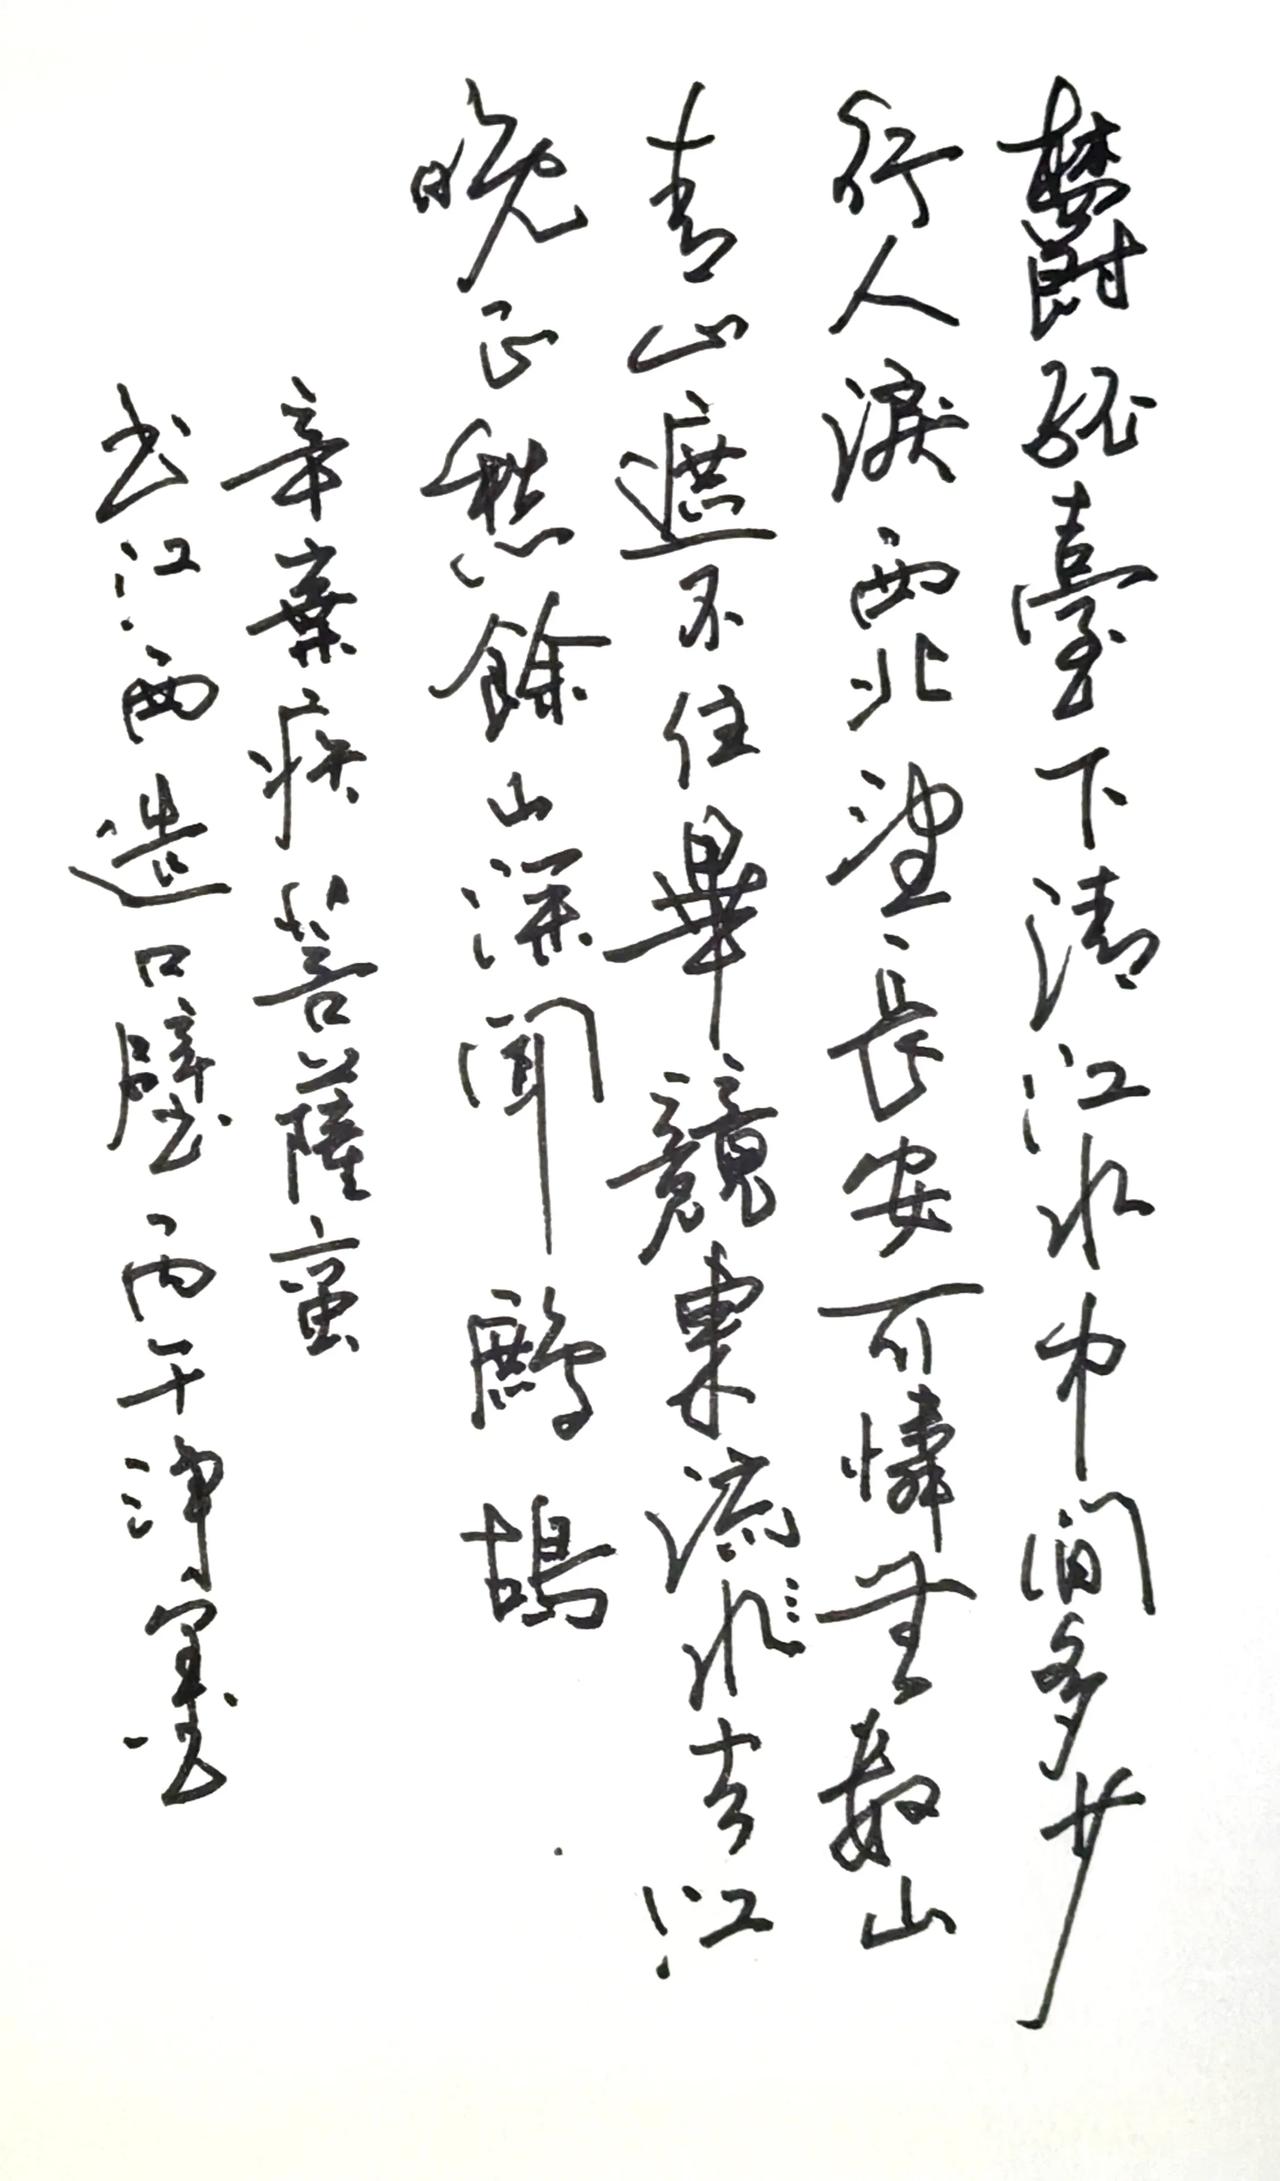 鬱孤臺下清江水中間多少
行人淚西北望長安可憐無數山
青山遮不住畢竟東流水去江
晚正愁餘山深聞鷓鴣
辛棄疾菩薩蠻
書江西造口壁丙午淨寞書